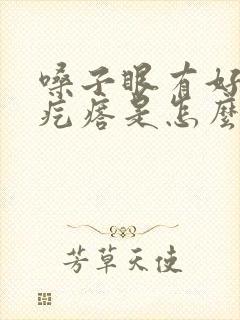 嗓子眼有好
疙瘩是怎麼
芳草天使